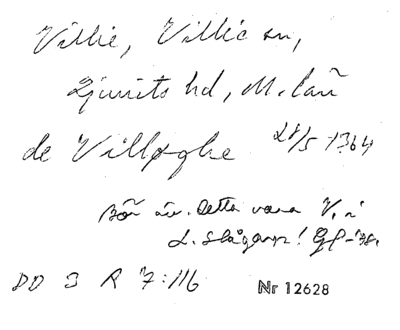 Villie, Villie sn,
Ljunits hd, M.län
de Villøghe 28/5 1364
Bör äv. detta vara V. i
L. Slågarp! GP-78.
DD 3 R 7:116
Nr 12628